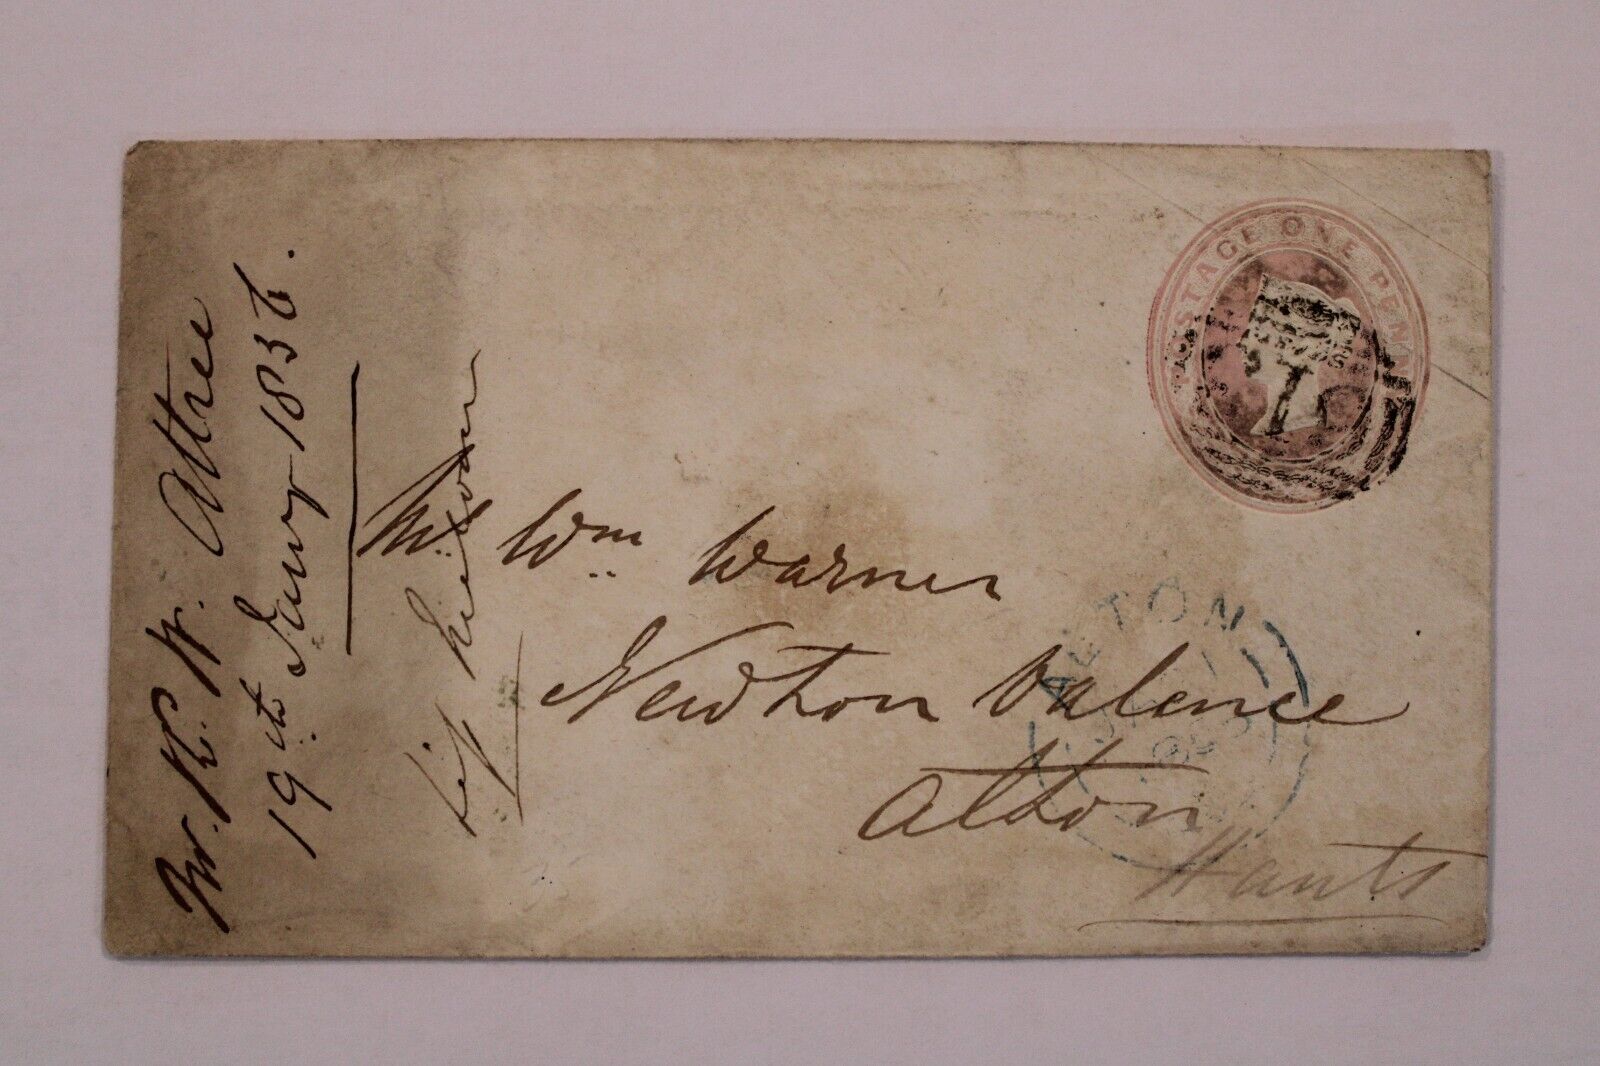 Mr. K. W. Attree
19th Janry 1856.
POSTAGE ONE PENNY
Mr. Wm. Warner
Newton Valence
Alton
Hants
ALTON